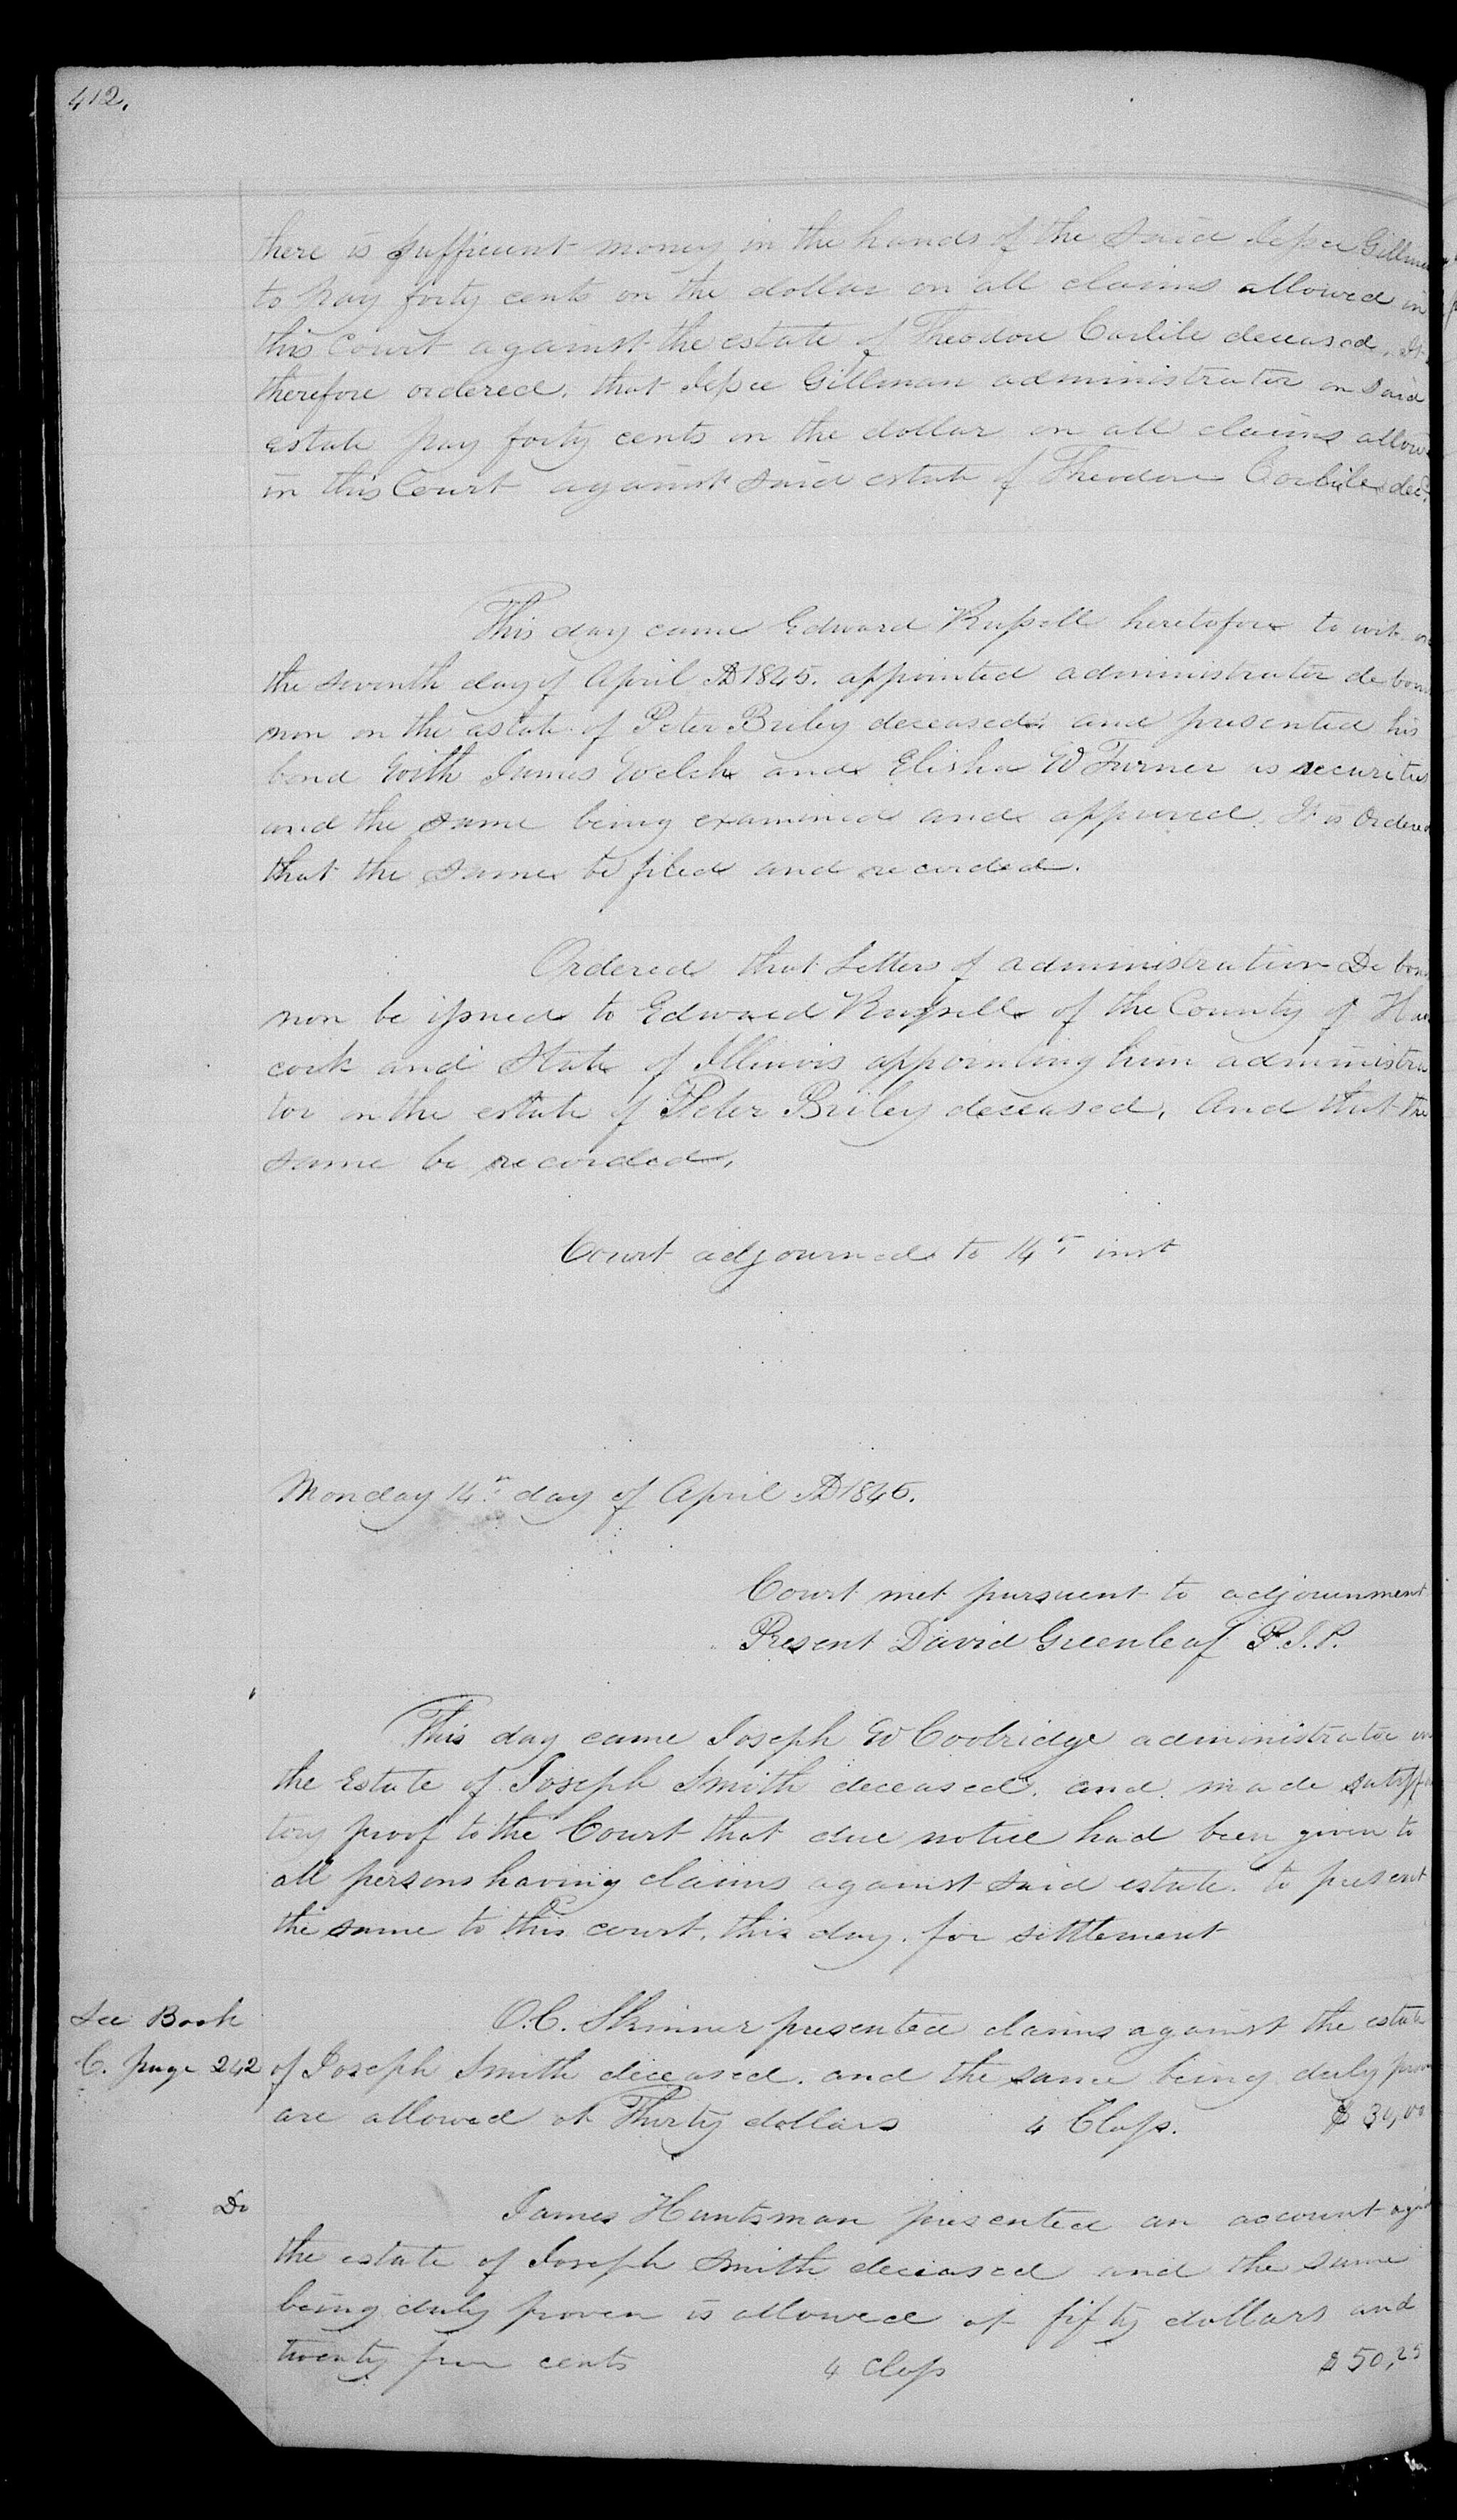 412.
there is sufficient money in the hands of the said Jesse Gillman
to pay forty cents on the dollar on all claims allowed in
this Court against the estate of Theodore Carlile deceased. It
therefore ordered. that Jesse Gillman administrator on said
estate pay forty cents on the dollar on all claims allow
in this Court against said estate of Theodore Carlile decd.
This day came Edward Russell heretofore to wit on
the seventh day of April AD 1845. appointed administrator de bonis
non on the estate of Peter Briley deceased and presented his
bond with James Welch and Elisha W Turner as securities
and the same being examined and approved. It is Ordered
that the same be filed and recorded.
Ordered that Letters of administration De bonis
non be issued to Edward Russell of the County of Han
cock and State of Illinois appointing him administra
tor on the estate of Peter Briley deceased, And that the
same be recorded,
Court adjourned to 14th inst
Monday 14th day of April AD 1845.
Court met pursuent to adjournment
Present David Greenleaf P.J.P.
This day came Joseph W Coolridge administrator on
the Estate of Joseph Smith deceased. and made satisfac
tory proof to the Court that due notice had been given to
all persons having claims against said estate. to present
the same to this court. this day. for settlement
See Book
C. page 242
O.C. Skinner presented claims against the estate
of Joseph Smith deceased. and the same being duly proven
are allowed at Thirty dollars 4 Class. $30,00
Do
James Huntsman presented an account against
the estate of Joseph Smith deceased and the same
being duly proven is allowed at fifty dollars and
twenty five cents 4 Class $50,25